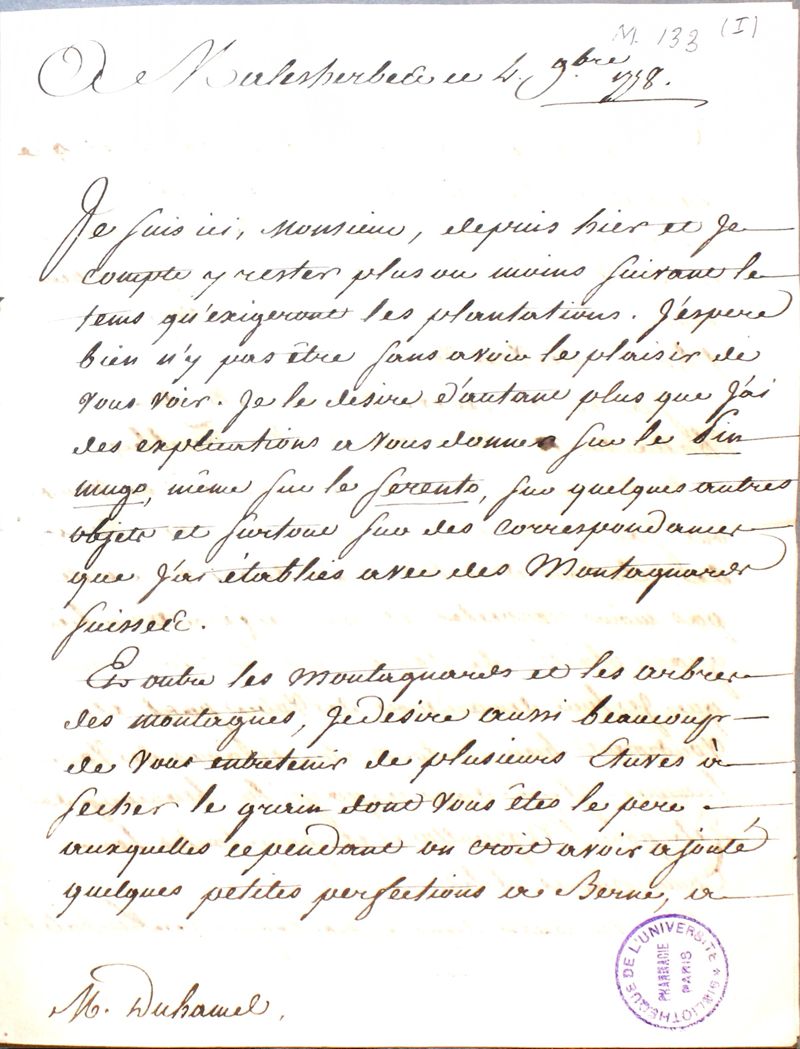 M. 133 (I)
A Malesherbes ce 4. 9.bre
1778.
Je suis ici, Monsieur, depuis hier et Je
compte y rester plus ou moins suivant le
tems qu'exigeront les plantations. J'éspere
bien n'y pas être sans avoir le plaisir de
vous voir. Je le desire d'autant plus que J'ai
des explications a vous donner sur le Pin
mugo, même sur le serento, sur quelques autres
objets et surtout sur des correspondances
que J'ai établies avec des Montagnards
suisses.
En outre les montagnards et les arbres
des montagnes, Je desire aussi beaucoup
de vous entretenir de plusieurs Etuves à
secher le grain dont vous êtes le pere
auxquelles cependant on croit avoir ajouté
quelques petites perfections a Berne, a
M. Duhamel.
BIBLIOTHEQUE DE L'UNIVERSITE
PHARMACIE
PARIS